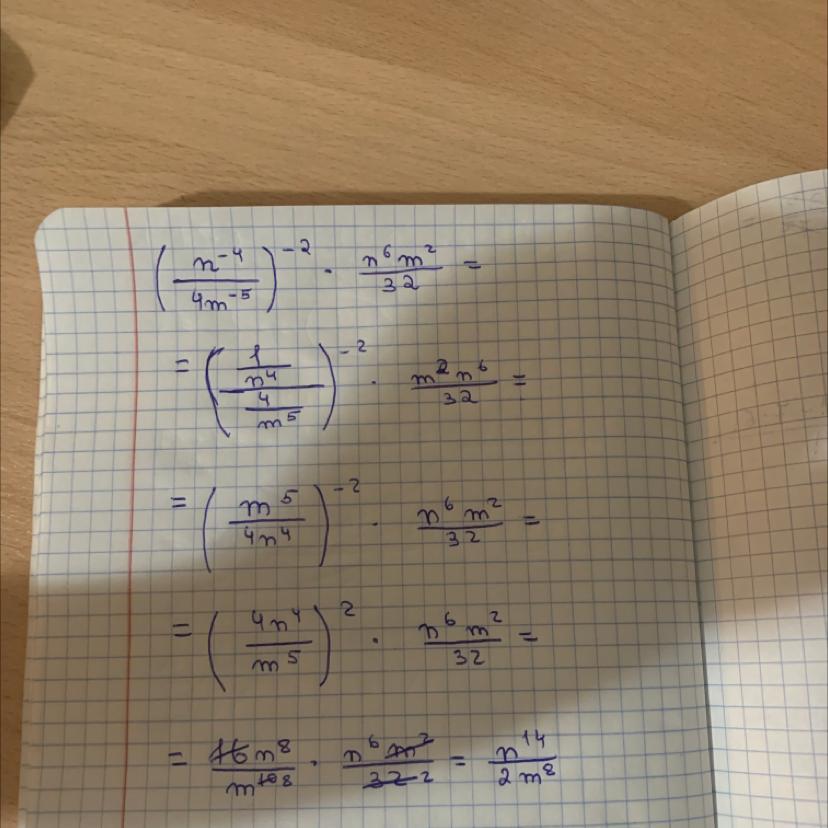 (n⁻⁴/4m⁻⁵)⁻² · n⁶m²/32 =
= ((1/n⁴)/(4/m⁵))⁻² · m²n⁶/32 =
= (m⁵/4n⁴)⁻² · n⁶m²/32 =
= (4n⁴/m⁵)² · n⁶m²/32 =
= 16n⁸/m¹⁰ ⁸ · n⁶m²/32 2 = n¹⁴/2m⁸